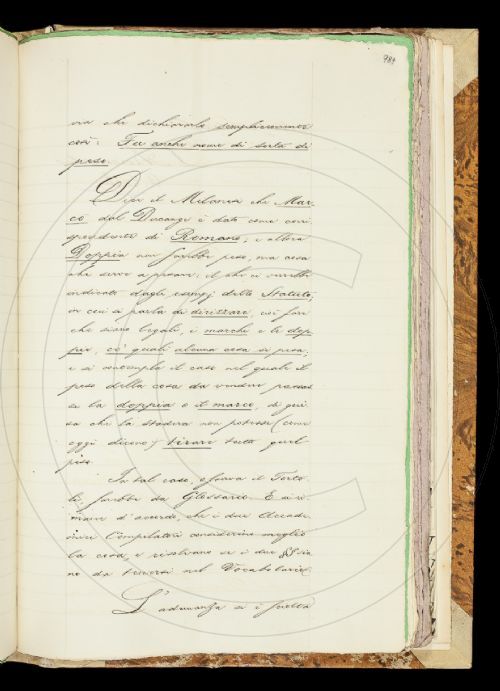 984
via che dichiararla semplicemente
così: Fu anche nome di sorta di
peso.
Dice il Milanesi che Mar-
co dal Ducange è dato come corri-
spondente di Romano; e allora
Doppia non sarebbe peso, ma cosa
che serve a pesare: il che ci verrebbe
indicato dagli esempj dello Statuto,
in cui si parla di dirittare, cioè fare
che siano legali, i marchi e le dop-
pie, co' quali alcuna cosa si pesa;
e si contempla il caso nel quale il
peso della cosa da vendere passas-
se la doppia o il marco, di gui-
sa che la stadera non potesse (come
oggi dicono) tirare tutto quel
peso.
In tal caso, osserva il Torto-
li, sarebbe da Glossario. E si ri-
mane d'accordo, che i due Accade-
mici Compilatori considerino meglio
la cosa, e risolvano se i due §§ sia-
no da tenersi nel Vocabolario.
L'adunanza si è sciolta